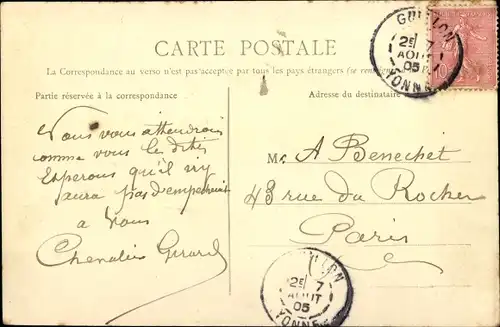 CARTE POSTALE
La Correspondance au verso n'est pas acceptée par tous les pays étrangers (se renseigner
Partie réservée à la correspondance
Adresse du destinataire
Nous vous attendrons
comme vous le dites
Esperons qu'il n'y
aura pas d'empechement
a Vous
Chevalier Gerard
Mr A Benechet
43 rue du Rocher
Paris
GUILLON
2E 7
AOUT
05
YONNE
10
GUILLON
2E 7
AOUT
05
YONNE